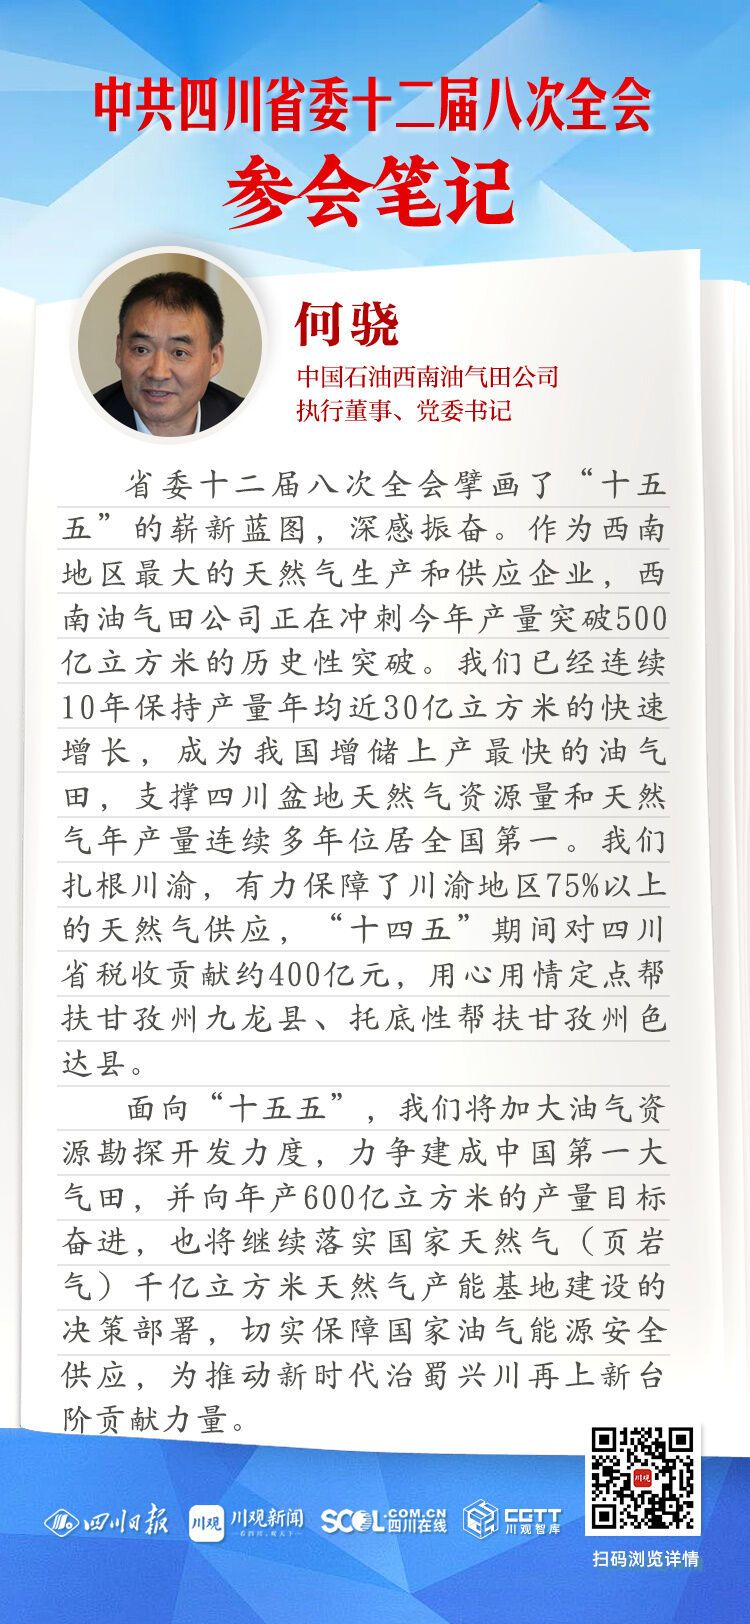 中共四川省委十二届八次全会
参会笔记
何骁
中国石油西南油气田公司
执行董事、党委书记
省委十二届八次全会擘画了“十五
五”的崭新蓝图，深感振奋。作为西南
地区最大的天然气生产和供应企业，西
南油气田公司正在冲刺今年产量突破500
亿立方米的历史性突破。我们已经连续
10年保持产量年均近30亿立方米的快速
增长，成为我国增储上产最快的油气
田，支撑四川盆地天然气资源量和天然
气年产量连续多年位居全国第一。我们
扎根川渝，有力保障了川渝地区75%以上
的天然气供应，“十四五”期间对四川
省税收贡献约400亿元，用心用情定点帮
扶甘孜州九龙县、托底性帮扶甘孜州色
达县。
面向“十五五”，我们将加大油气资
源勘探开发力度，力争建成中国第一大
气田，并向年产600亿立方米的产量目标
奋进，也将继续落实国家天然气（页岩
气）千亿立方米天然气产能基地建设的
决策部署，切实保障国家油气能源安全
供应，为推动新时代治蜀兴川再上新台
阶贡献力量。
四川日报
川观
川观新闻
一看四川，观天下一
SCOL.COM.CN
四川在线
CGTT
川观智库
川观
扫码浏览详情